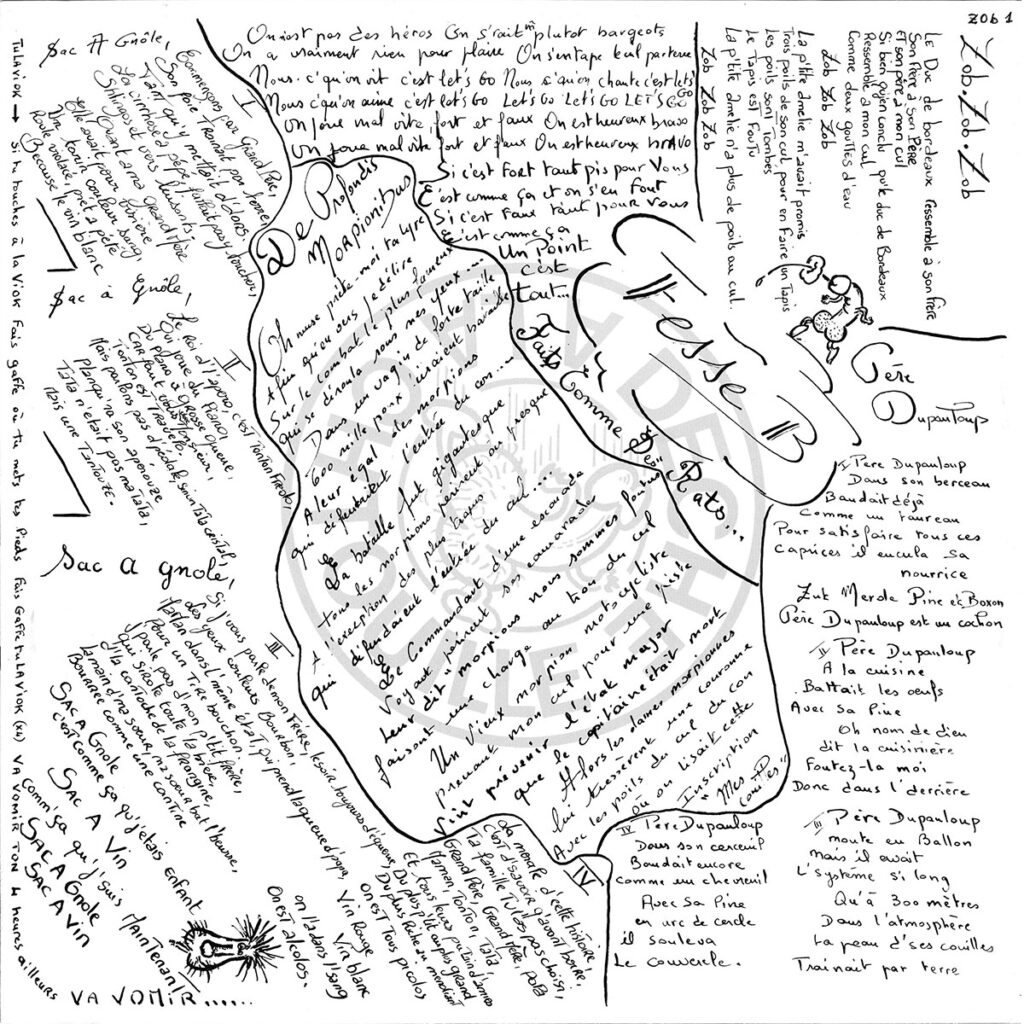 ZOB 1
Tulaviok → Si tu touches à la Viok Fais gaffe où tu mets tes Pieds Fais Gaffe tulaviok (x4) VA VOMIR TON 4 heures ailleurs
$ac A Gnôle,
I
Commençons par Grand Père,
Son foie Trennait par Terre,
Tant qu'y mettait d'dans
La cirrhose à pépé, fallait pas y toucher,
Quant à ma grand Mère
Elle avait pour derrière
Un tarin couleur sang
Roule violacé, prêt à pété
Because le vin blanc
$ac à Gnôle,
II
Le Roi d'l'apéro, c'est Tonton Fredo,
Qui joue du Pianon
Du piano à grosse queue
Car faut vous dire Monsieur,
Tonton est Travelo,
Mais parlons pas d'pédale, sinon Tata cavale,
Planqu'na son apérouze
Tata n'était pas ma Tata,
Mais une Tantouze.
Sac A gnole,
III
Si j'vous parle de mon Frère, le soir toujours d'équerre
Les yeux couleurs Bourbon,
Maton dans l'même état, qui prend la queue d'papa,
Pour un Tire bouchon,
J'parle pas d'mon p'tit frère,
Qui sirote toute la bière,
D'la contrade de la frangine,
La main d'ma soeur, ma soeur bat l'beurre,
Bourrée comme une cantine
SAC A Gnole
c'est comme ça qu'j'étais enfant
SAC A Vin
Comm' ça qu'j'suis MainTenant
SAC A GNole
SAC A Vin
VA VOMIR......
IV
La morale d'cette histoire,
C'est d'savoir qu'avant boire,
Ta famille Tu l'as pas choisi,
Grand Père, Grand Mère, papa
Maman, Tonton, Tata,
Et tous leurs putain d'amis
Du plus p'tit au plus grand
Du plus Riche au mendiant
on est Tous picolos
Vin Rouge Vin blanc
on l'a dans l'sang
On est alcolos.
On est pas des héros On s'rait mm plutot bargeots
On a vraiment rien pour plaire On s'entape le cul parterre
Nous c'qu'on vit c'est let's Go Nous s'qu'on chante c'est let's Go
Nous c'qu'on aime c'est let's Go Let's Go Let's Go LETS GO
On joue mal vite, fort et faux On est heureux bravo
On joue mal vite fort et faux On est heureux bravo
Si c'est Fort tant pis pour Vous
C'est comme ça et on s'en Fout
Si c'est Faux tant pour vous
C'est comme ça
Un Point
c'est
tout...
Faits Comme Des Rats...
De Profondis
Morpionibus
Oh muse prête-moi ta lyre
Afin qu'en vers je délire
Sur le combat le plus fameux
qui se déroula sous mes yeux...
Dans un vagin de forte taille
600 mille poux livraient bataille
A leur égal des morpions
qui défendaient l'entrée du con...
La bataille fut gigantesque
tous les morpions périrent ou presque
A l'exception des plus trapus
qui défendaient l'entrée du cul...
Le Commandant d'une escouade
Voyant périr ses camarades
Leur dit morpions nous sommes foutus
faisons une charge au trou du cul
Un vieux morpion motocycliste
prenant mon cul pour une piste
Vint prévenir l'état major
que le capitaine était mort
Alors les dames morpionnes
lui tressèrent une couronne
Avec les poils du cul du con
Où on lisait cette
Inscription
"Mes couilles"
Zob. Zob. Zob
Le Duc de bordeaux ressemble à son frère
Son frère à son Père
et son père à mon cul
Si bien qu'j'en conclu qu'le duc de Bordeaux
Ressemble à mon cul
Comme deux gouttes d'eau
Zob Zob Zob
La p'tite amelie m'avait promis
Trois poils de son cul pour en Faire un Tapis
Les poils sont Tombés
Le Tapis est Foutu
La p'tite amelie n'a plus de poils au cul.
Zob Zob Zob
Fesse B
Père
Dupanloup
I Père Dupanloup
Dans son berceau
Bandait déjà
Comme un taureau
Pour satisfaire tous ces
Caprices il encula sa
nourrice
Zut Merde Pine et Boxon
Père Dupanloup est un cochon
II Père Dupanloup
A la cuisine
Battait les oeufs
Avec sa Pine
Oh nom de dieu
dit la cuisinière
Foutez-la moi
Donc dans l'derrière
III Père Dupanloup
monte en Ballon
Mais il avait
L'système si long
Qu'à 300 mètres
Dans l'atmosphère
La peau d'ses couilles
Trainait par terre
IV Père Dupanloup
Dans son cercueil
Bandait encore
Comme un chevreuil
Avec sa Pine
en arc de cercle
il souleva
Le couvercle.